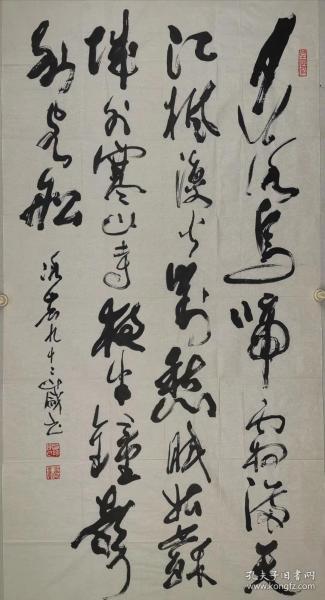 月落烏啼霜滿天
江楓漁火對愁眠姑蘇
城外寒山寺夜半鐘聲
到客船
九十歲書
孔夫子旧书网